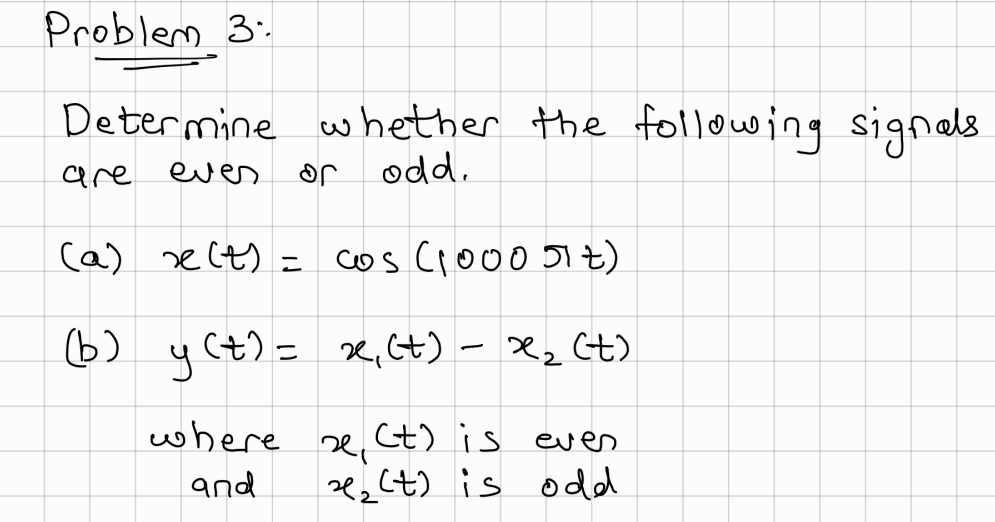 Problem 3:
Determine whether the following signals
are even or odd.
(a) x(t) = cos(1000πt)
(b) y(t) = x₁(t) - x₂(t)
where x₁(t) is even
and x₂(t) is odd